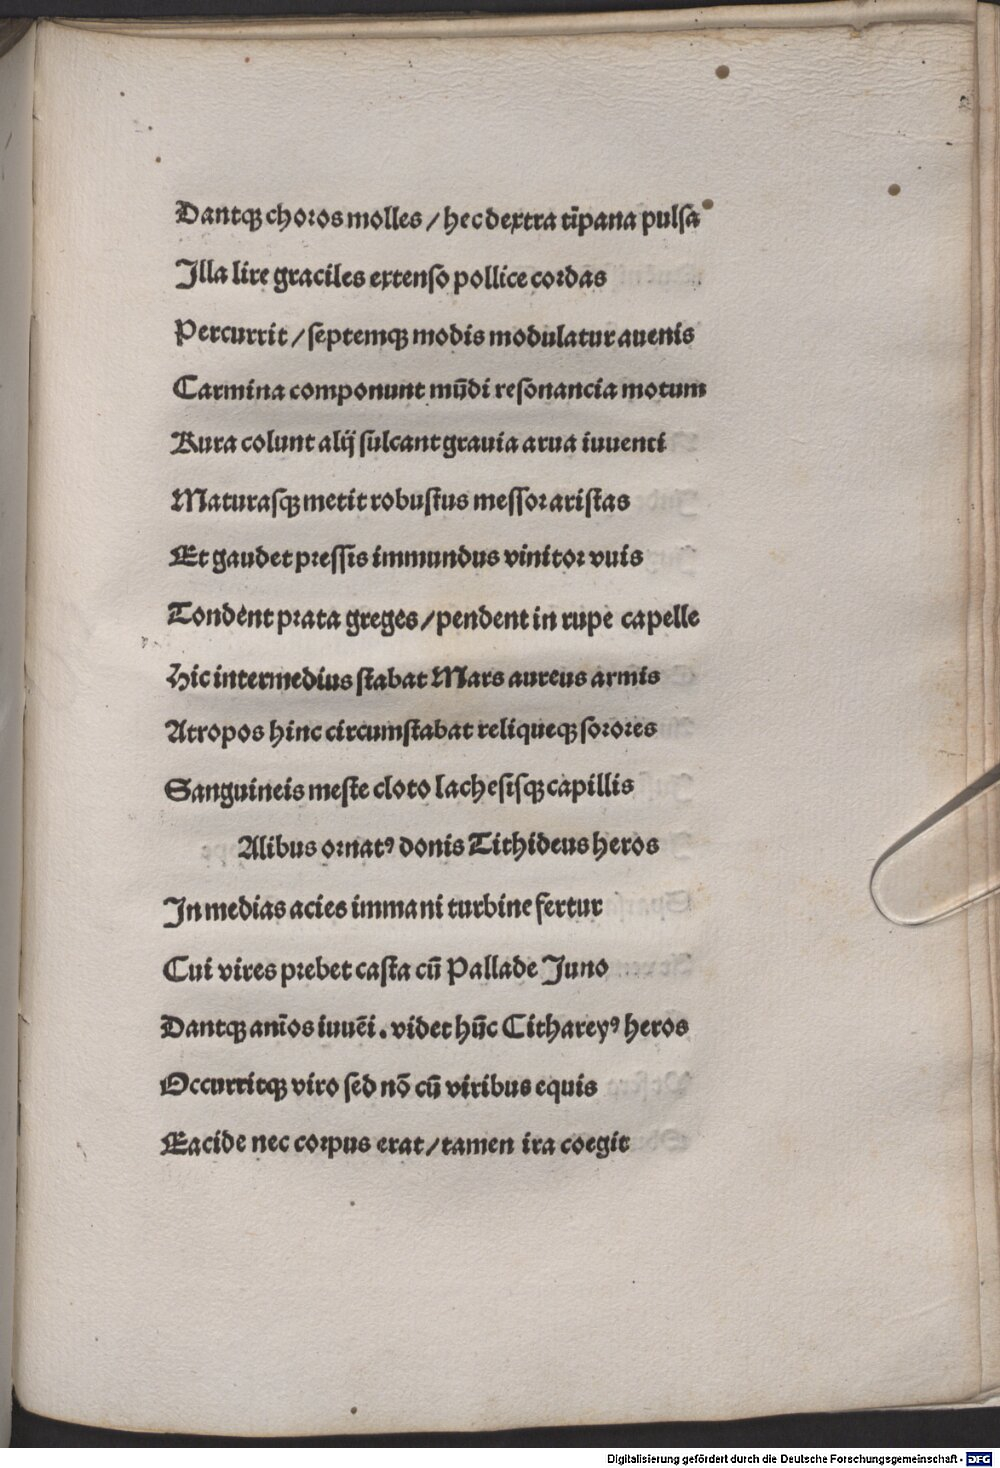 Dantqꝫ choros molles / hec dextra tīpana pulsa
Illa lire graciles extenso pollice cordas
Percurrit / septemqꝫ modis modulatur auenis
Carmina componunt mūdi resonancia motum
Rura colunt alij sulcant grauia arua iuuenci
Maturasqꝫ metit robustus messor aristas
Et gaudet pressis immundus vinitor vuis
Tondent prata greges / pendent in rupe capelle
Hic intermedius stabat Mars aureus armis
Atropos hinc circumstabat reliqueqꝫ sorores
Sanguineis meste cloto lachesisqꝫ capillis
Alibus ornatꝰ donis Tithideus heros
In medias acies immani turbine fertur
Cui vires prebet casta cū Pallade Juno
Dantqꝫ anīos iuuēi . videt hūc Cithareyꝰ heros
Occurritqꝫ viro sed nō cū viribus equis
Eacide nec corpus erat / tamen ira coegit
Digitalisierung gefördert durch die Deutsche Forschungsgemeinschaft - DFG